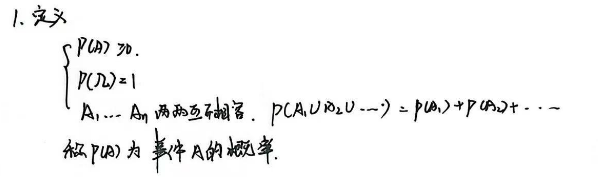 1. 定义
P(A) ≥0.
P(Ω)=1
A₁...Aₙ 两两互不相容. P(A₁∪A₂∪…) = P(A₁)+P(A₂)+...
称P(A)为 事件A的概率.